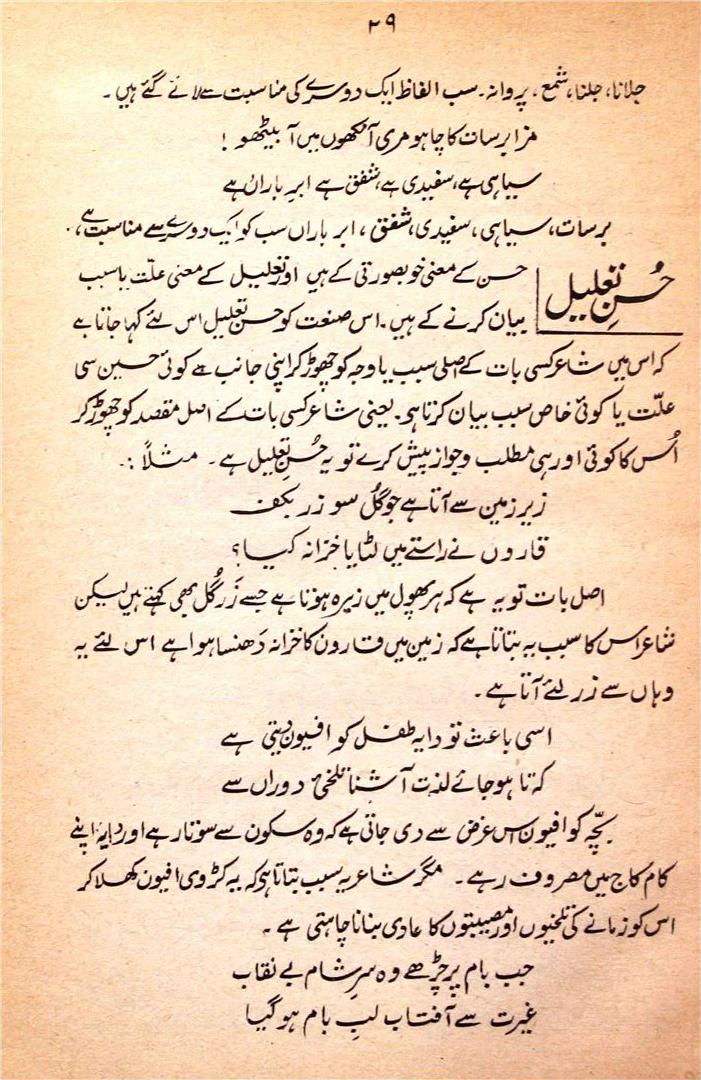 ۲۹
جلانا، جلنا، شمع، پروانہ۔ سب الفاظ ایک دوسرے کی مناسبت سے لائے گئے ہیں۔
مزا برسات کا چاہو مری آنکھوں میں آ بیٹھو !
سیاہی ہے، سفیدی ہے، شفق ہے ابرِ باراں ہے
برسات، سیاہی، سفیدی، شفق، ابر باراں سب کو ایک دوسرے سے مناسبت ہے۔
حُسنِ تعلیل
حسن کے معنی خوبصورتی کے ہیں اور تعلیل کے معنی علّت یا سبب
بیان کرنے کے ہیں۔ اس صنعت کو حسن تعلیل اس لئے کہا جاتا ہے
کہ اس میں شاعر کسی بات کے اصلی سبب یا وجہ کو چھوڑ کر اپنی جانب سے کوئی حسین سی
علّت یا کوئی خاص سبب بیان کرتا ہو۔ یعنی شاعر کسی بات کے اصل مقصد کو چھوڑ کر
اُس کا کوئی اور ہی مطلب و جواز پیش کرے تو یہ حُسنِ تعلیل ہے۔ مثلاً :۔
زیر زمین سے آتا ہے جو گُل سو زر بکف
قاروں نے راستے میں لٹایا خزانہ کیا؟
اصل بات تو یہ ہے کہ ہر پھول میں زیرہ ہوتا ہے جسے زَرِ گُل بھی کہتے ہیں لیکن
شاعر اس کا سبب یہ بتاتا ہے کہ زمین میں قارون کا خزانہ دَھنسا ہوا ہے اس لئے یہ
وہاں سے زر لئے آتا ہے۔
اسی باعث تو دایہ طفل کو افیون دیتی ہے
کہ تا ہو جائے لذت آشنا تلخئ دوراں سے
بچّہ کو افیون اس غرض سے دی جاتی ہے کہ وہ سکون سے سوتا رہے اور دایہ اپنے
کام کاج میں مصروف رہے۔ مگر شاعر یہ سبب بتاتا ہو کہ یہ کڑوی افیون کھلا کر
اس کو زمانے کی تلخیوں اور مصیبتوں کا عادی بنانا چاہتی ہے۔
جب بام پر چڑھے وہ سرِ شام بے نقاب
غیرت سے آفتاب لبِ بام ہو گیا